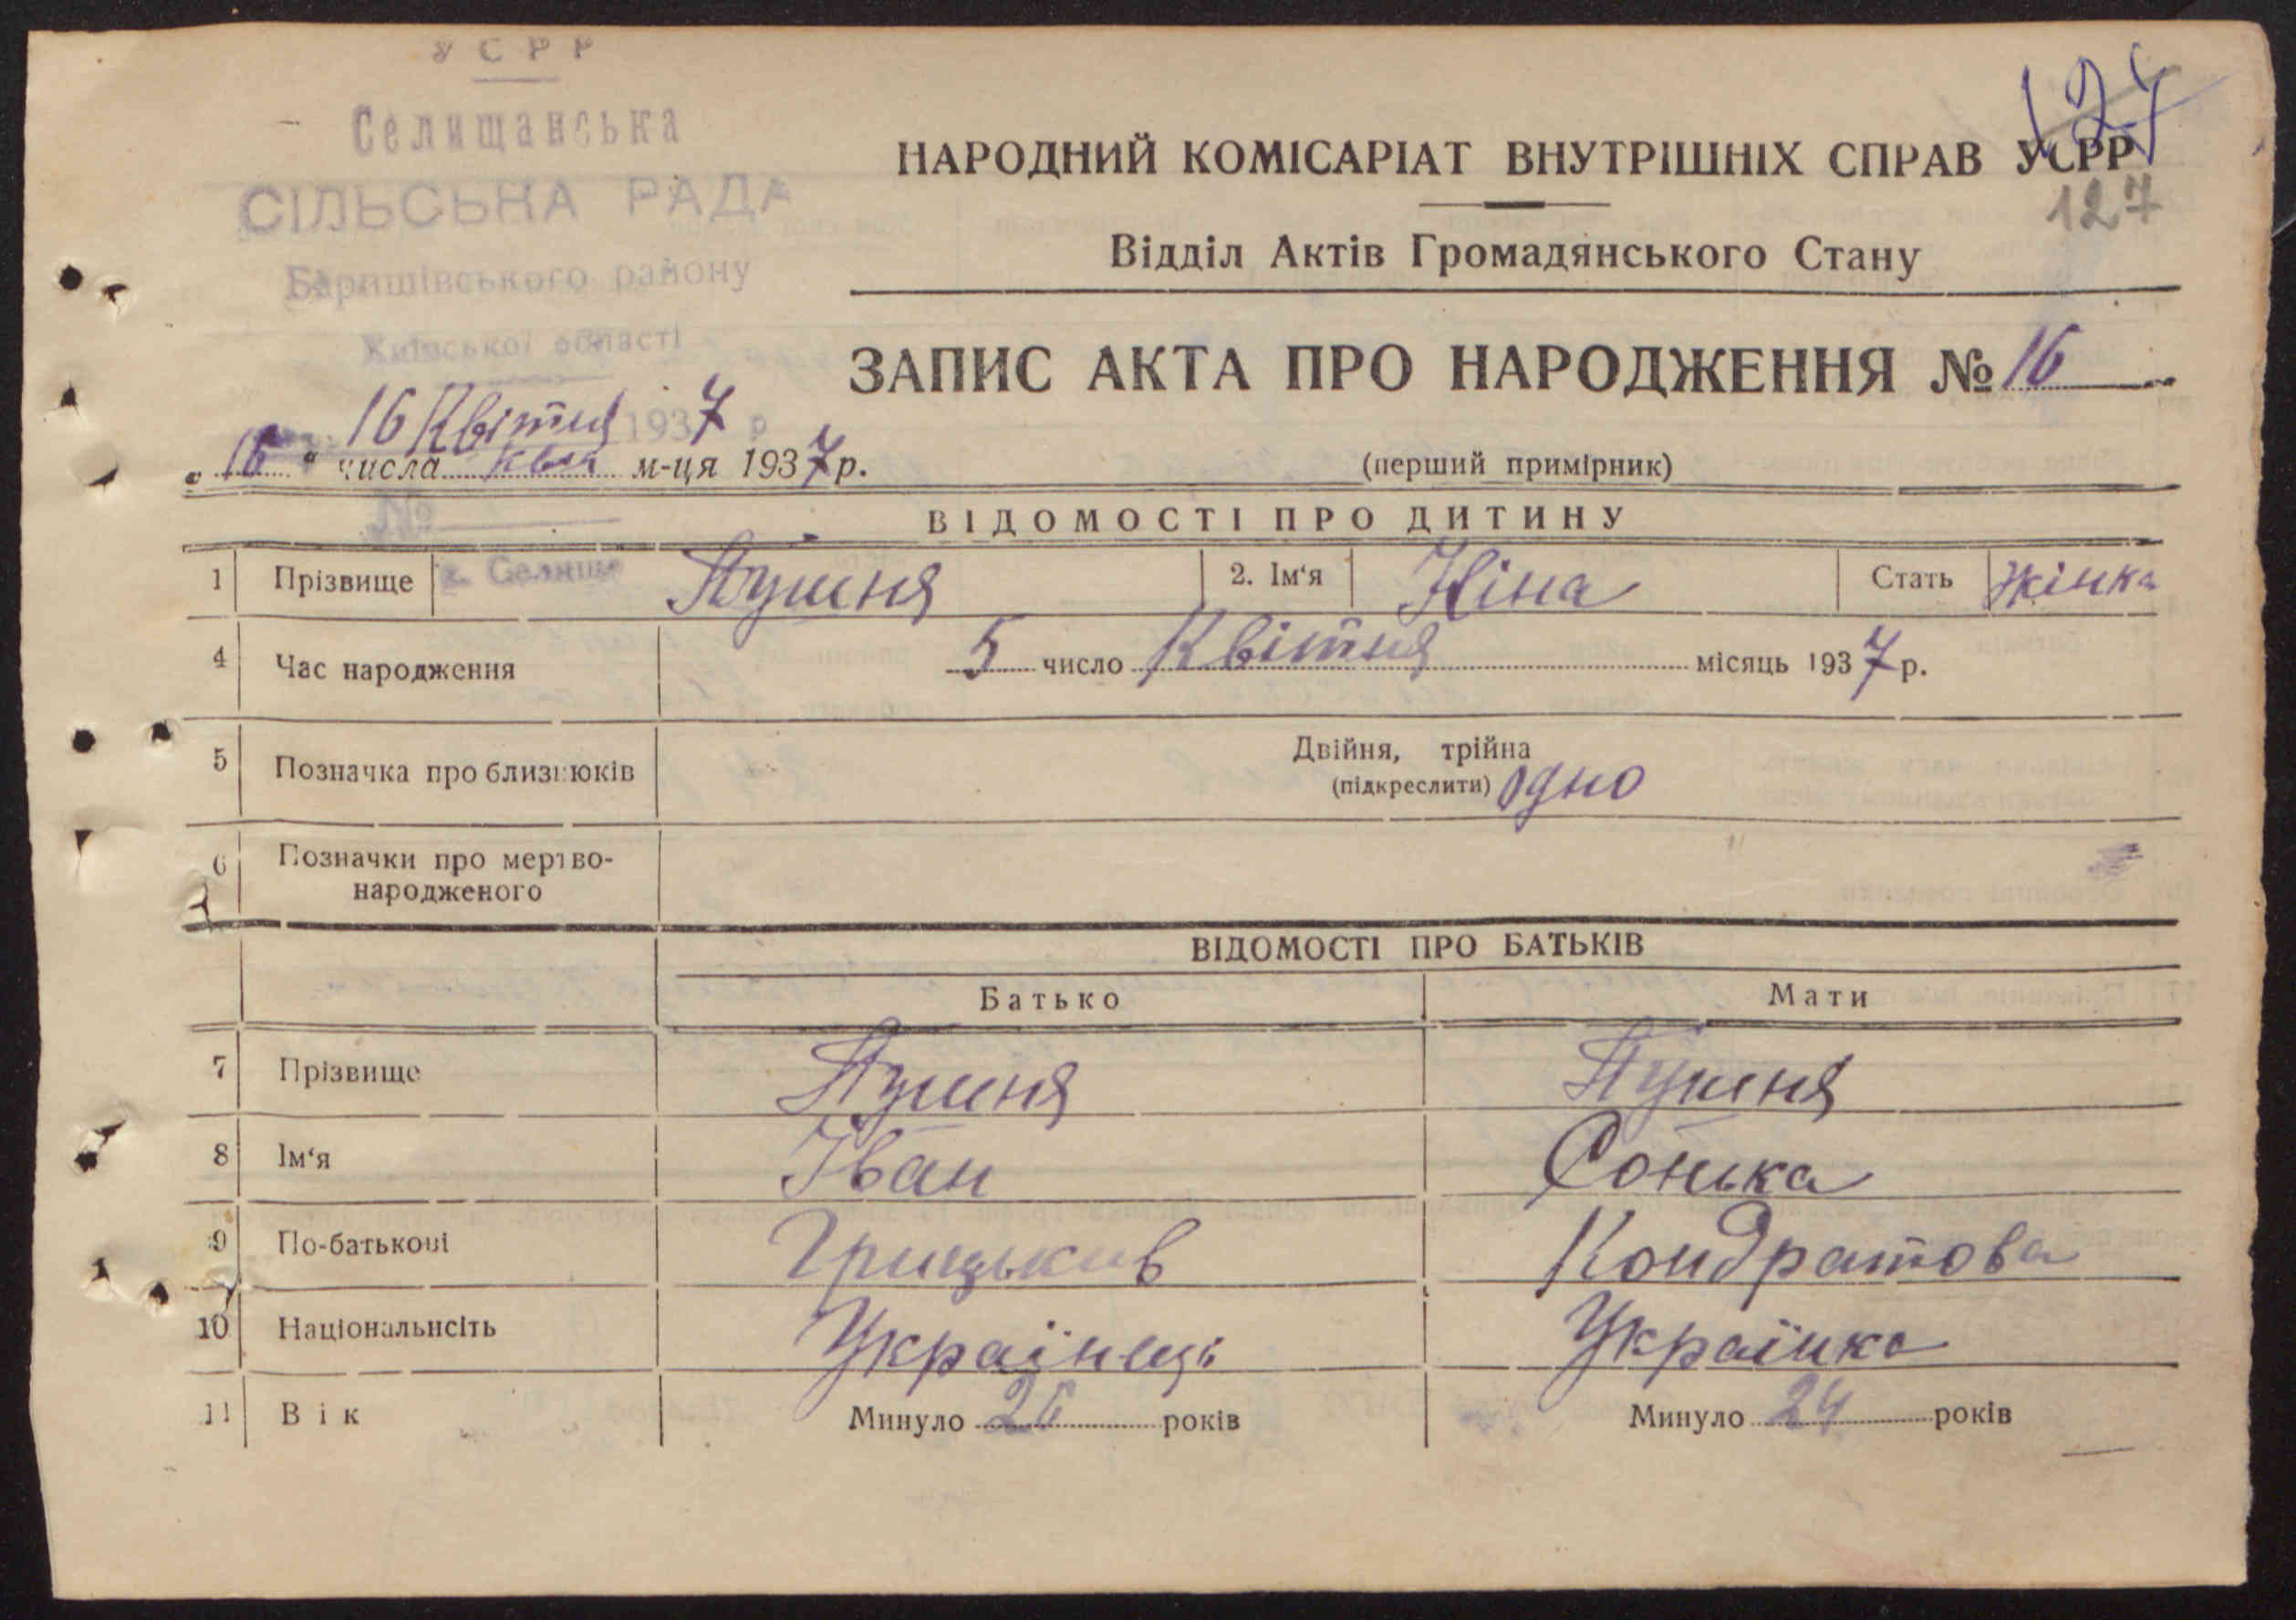 УСРР
Селищанська
СІЛЬСЬКА РАДА
Баришівського району
Київської області
16 Квітня 1937 р
№
с. Селище
127
НАРОДНИЙ КОМІСАРІАТ ВНУТРІШНІХ СПРАВ УСРР
127
Відділ Актів Громадянського Стану
ЗАПИС АКТА ПРО НАРОДЖЕННЯ № 16
„16“ числа квіт м-ця 1937 р.
(перший примірник)
ВІДОМОСТІ ПРО ДИТИНУ
1 Прізвище Пушня 2. Ім‘я Ніна Стать Жінка
4 Час народження 5 число Квітня місяць 1937 р.
5 Позначка про близнюків Двійня, трійна
(підкреслити) одно
6 Позначки про мертво-
народженого
ВІДОМОСТІ ПРО БАТЬКІВ
Батько Мати
7 Прізвище Пушня Пушня
8 Ім‘я Іван Сонька
9 По-батькові Грицьків Кондратова
10 Національнсіть Українець Українка
11 Вік Минуло 26 років Минуло 24 років